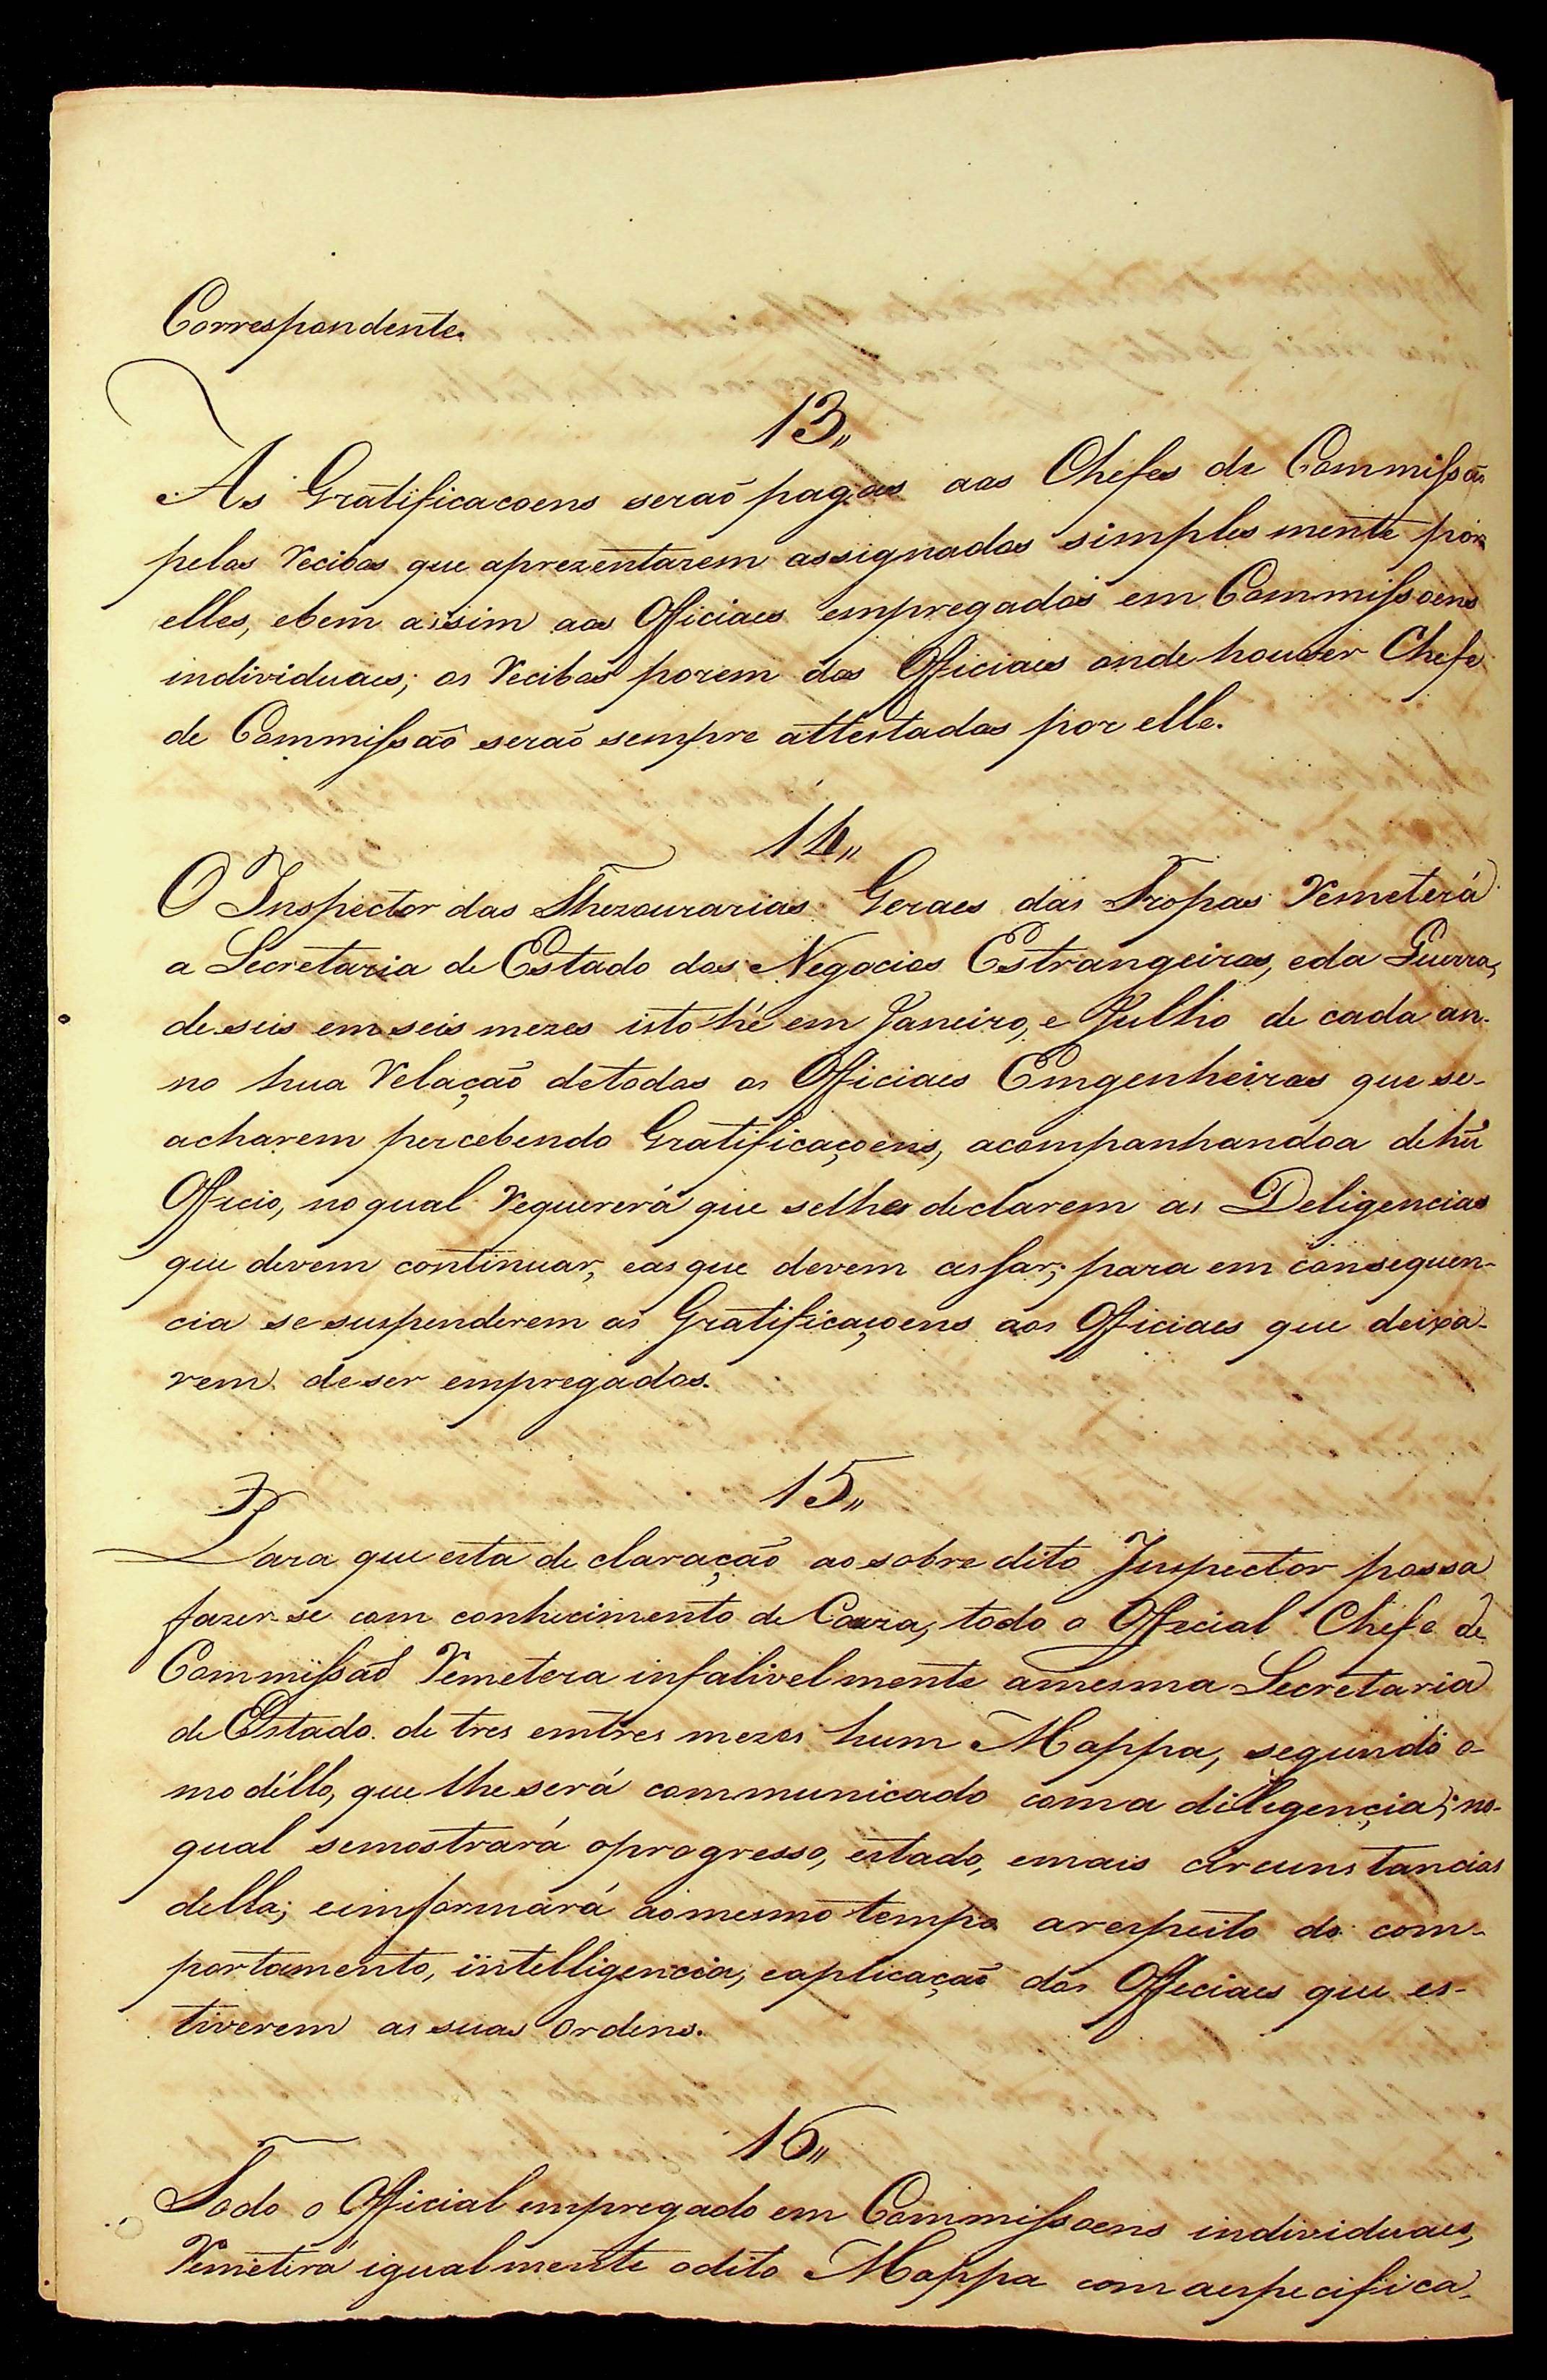 Correspondente.
13,,
As Gratificacoens seraõ pagas aos Chefes de Commissaõ
pelos recibos que aprezentarem assignados simplesmente por
elles, ebem assim aos Officiaes empregados em Commissoens
individuaes; os recibos porem dos Officiaes onde houver Chefe
de Commissaõ seraõ sempre attestados por elle.
14,,
O Inspector das Thezourarias Geraes das Tropas remeterá
a Secretaria de Estado dos Negocios Estrangeiros, eda Guerra,
de seis em seis mezes isto hé em Janeiro, e Julho de cada an-
no hua relaçaõ detodos os Officiaes Emgenheiros que se-
acharem percebendo Gratificaçoens, acompanhandoa dehũ
Officio, no qual requererá que selhes declarem as Deligencias
que devem continuar, eas que devem cessar; para em consequen-
cia se suspenderem as Gratificaçoens aos Officiaes que deixa-
rem deser empregados.
15,,
Para que esta declaraçaõ ao sobredito Inspector possa
fazer-se com conhecimento de Couza, todo o Official Chefe de
Commissaõ remetera infalivelmente amesma Secretaria
de Estado de tres emtres mezes hum Mappa, segundo o-
modéllo, que lhe será communicado coma diligençia; no-
qual semostrará oprogresso, estado, emais circunstancias
della; eimformará aomesmo tempo arespeito do com-
portamento, intelligencia, eaplicaçaõ dos Officiaes que es-
tiverem as suas ordens.
16,,
Todo o Official empregado em Commissoens individuaes,
remeterá igualmente odito Mappa com aespecifica-